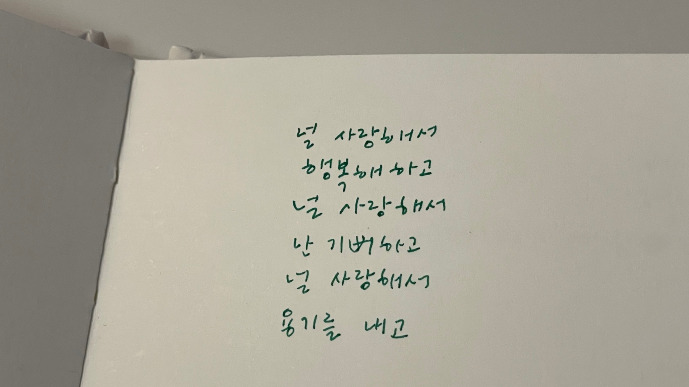 널 사랑해서
행복해 하고
널 사랑해서
난 기뻐하고
널 사랑해서
용기를 내고